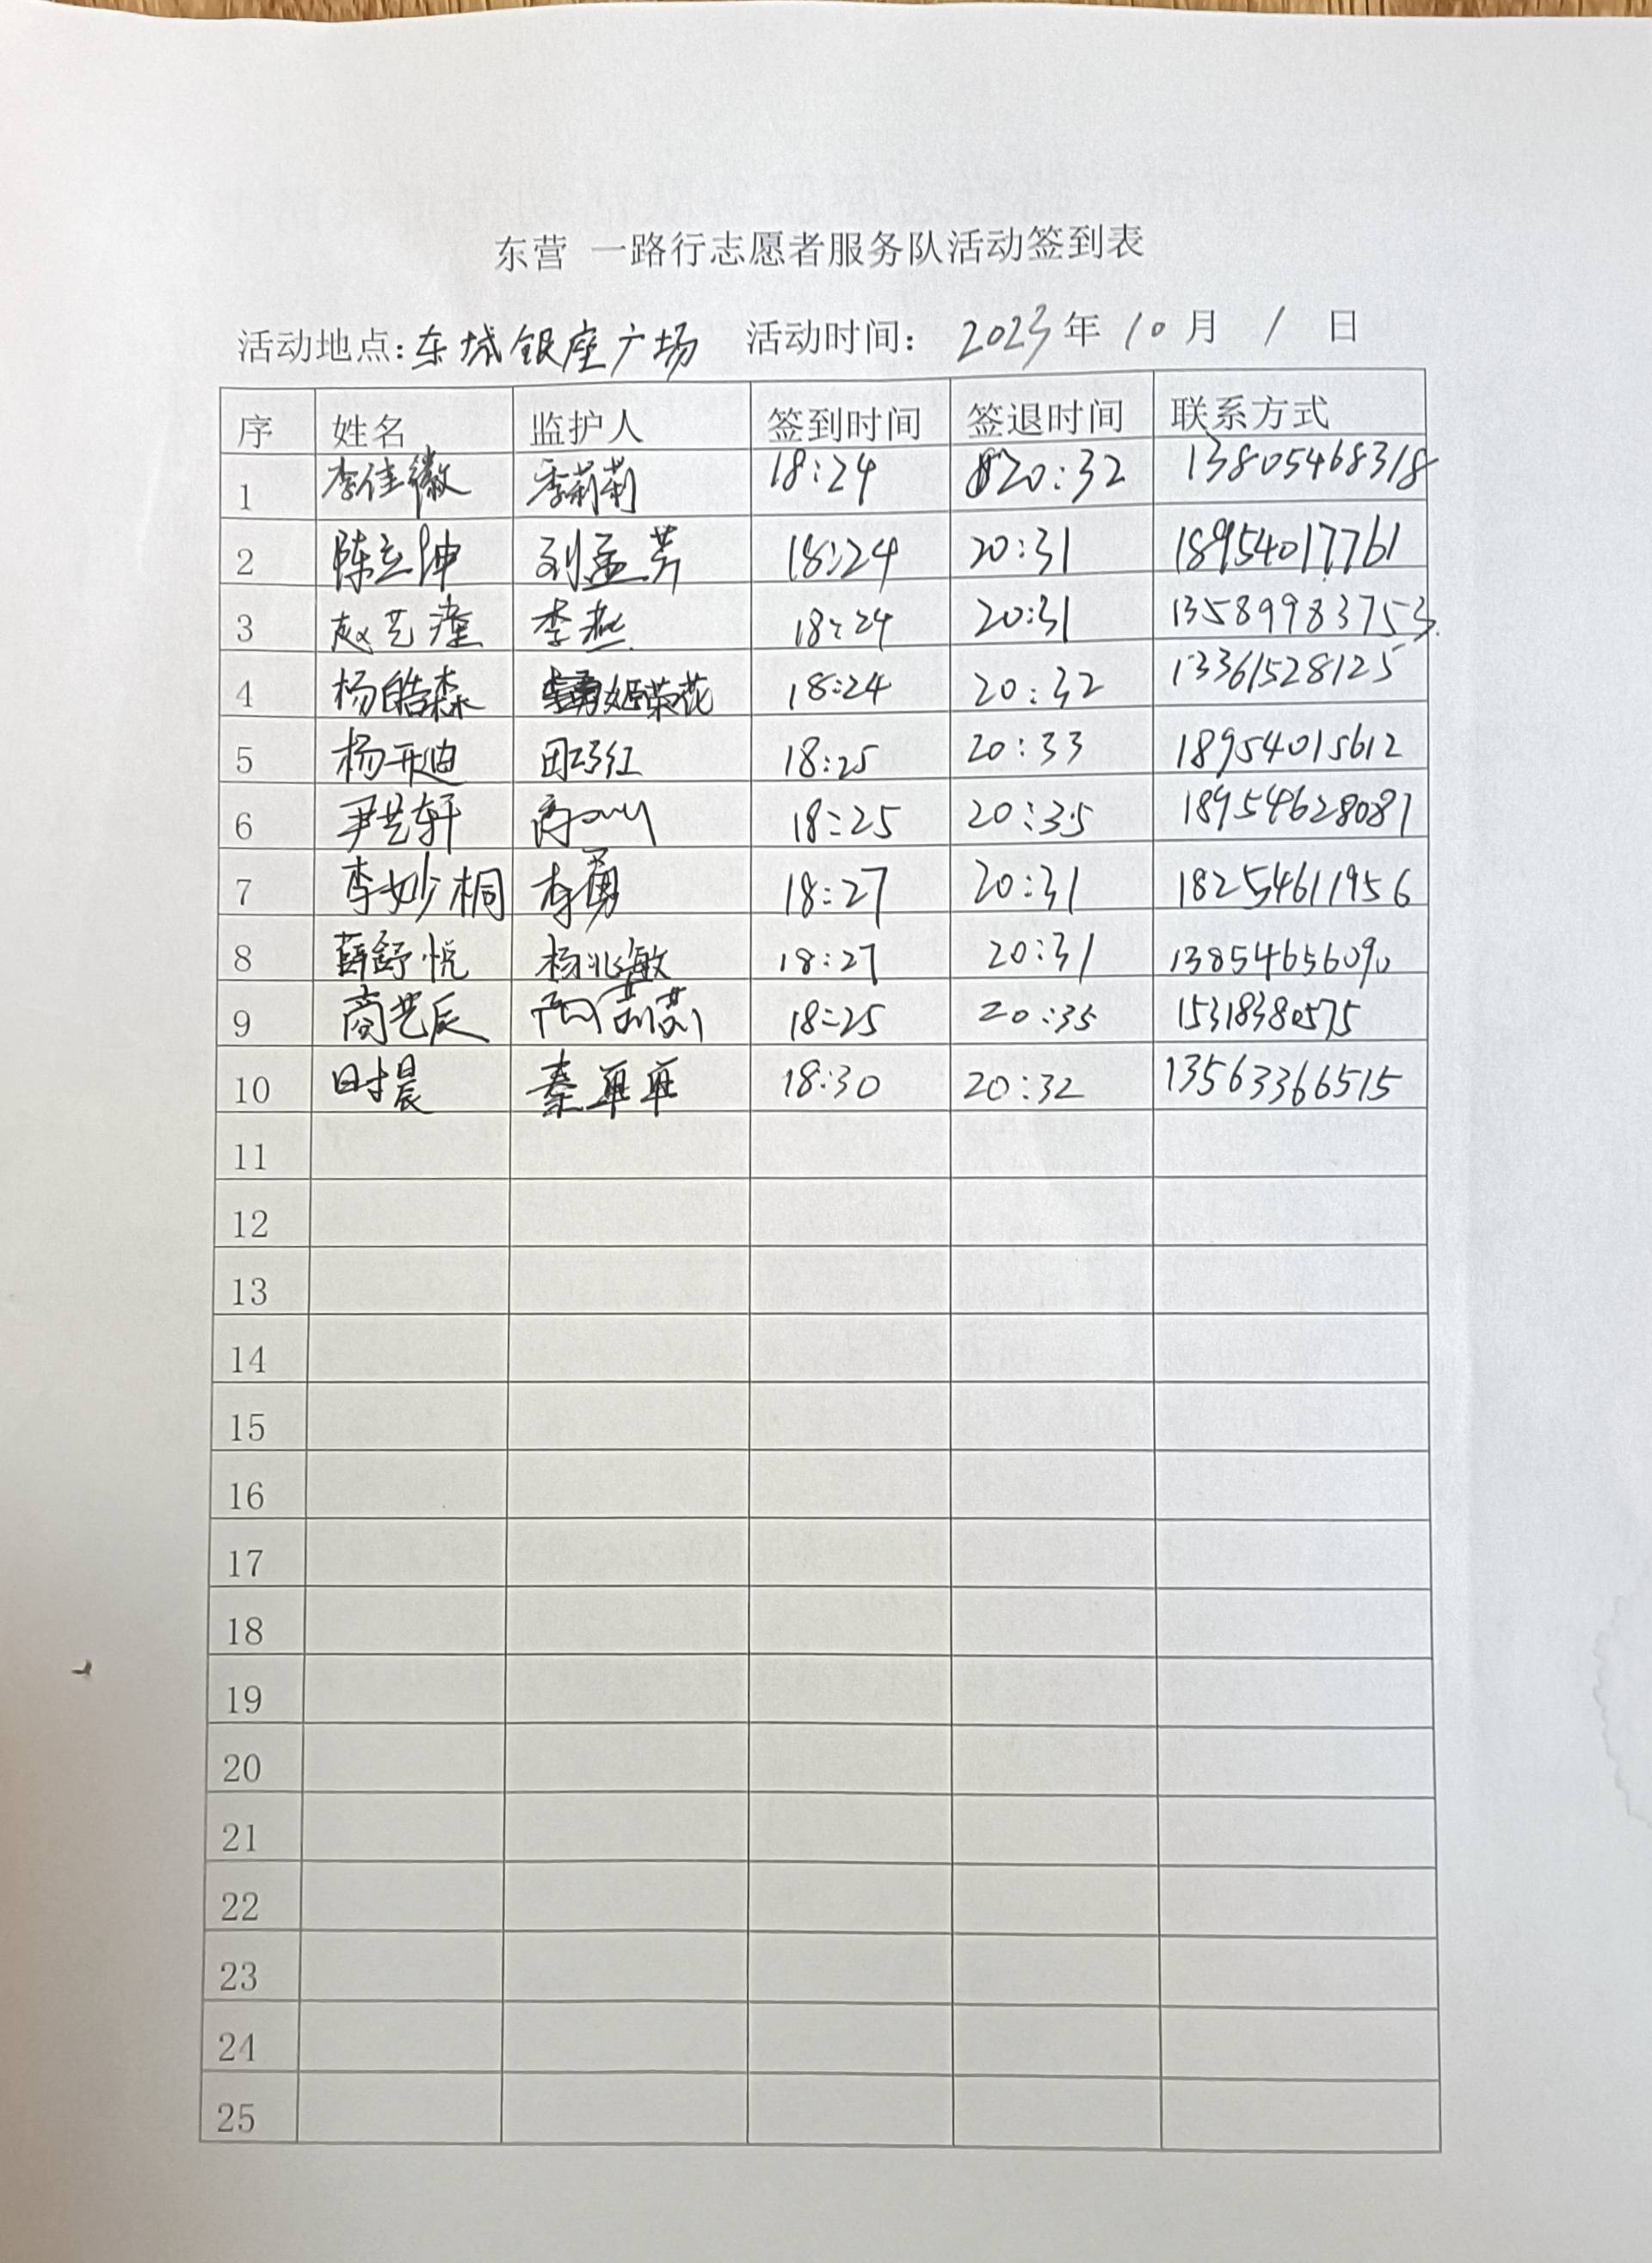 东营 一路行志愿者服务队活动签到表
活动地点:东城银座广场 活动时间: 2023年10月1日
序 姓名 监护人 签到时间 签退时间 联系方式
1 李佳徽 季莉莉 18:24 20:32 13805468318
2 陈立坤 刘孟芳 18:24 20:31 18954017761
3 赵艺潼 李燕 18:24 20:31 13589983753
4 杨皓森 姬荣花 18:24 20:32 13361528125
5 杨开迪 田巧红 18:25 20:33 18954015612
6 尹艺轩 18:25 20:35 18954628081
7 李妙桐 李勇 18:27 20:31 18254611956
8 薛舒悦 杨兆敏 18:27 20:31 13854656090
9 商艺辰 18:25 20:35 15318380575
10 时晨 秦苹苹 18:30 20:32 13563366515
11
12
13
14
15
16
17
18
19
20
21
22
23
24
25